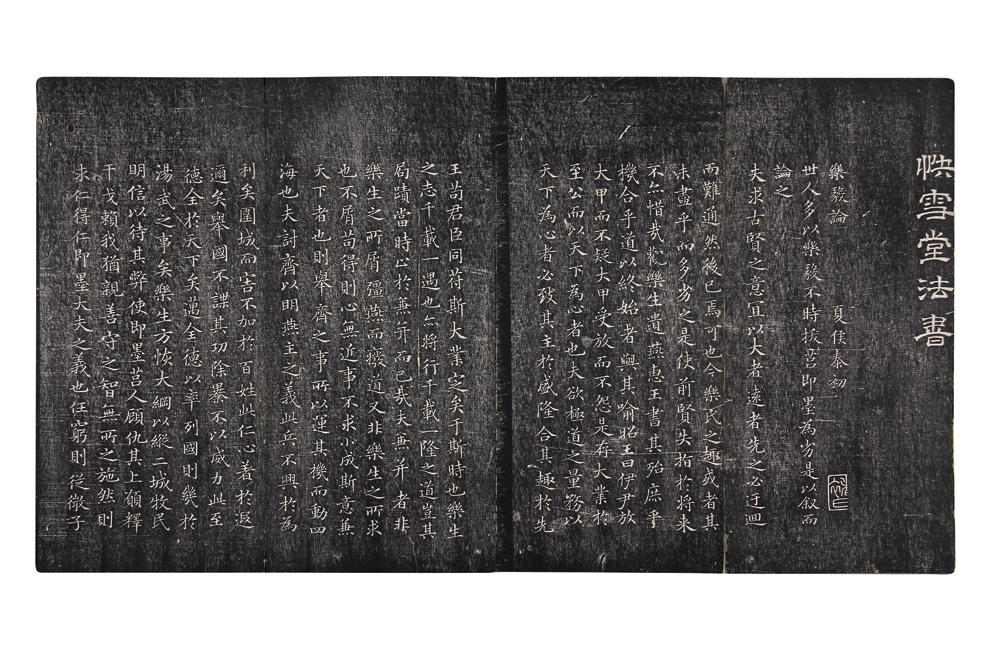 快雪堂法書
樂毅論 夏侯泰初
世人多以樂毅不時拔莒即墨為劣是以叙而
論之
夫求古賢之意宜以大者遠者先之必迂迴
而難通然後已焉可也今樂氏之趣或者其
未盡乎而多劣之是使前賢失指於將來
不亦惜哉觀樂生遺燕惠王書其殆庶乎
機合乎道以終始者與其喻昭王曰伊尹放
大甲而不疑大甲受放而不怨是存大業於
至公而以天下為心者也夫欲極道之量務以
天下為心者必致其主於盛隆合其趣於先
王苟君臣同苻斯大業定矣于斯時也樂生
之志千載一遇也亦將行千載一隆之道豈其
局蹟當時止於兼并而已㢤夫兼并者非
樂生之所屑彊燕而癈道又非樂生之所求
也不屑苟得則心無近事不求小成斯意兼
天下者也則舉齊之事所以運其機而動四
海也夫討齊以明燕主之義此兵不興於為
利矣圍城而害不加於百姓此仁心著於遐
邇矣舉國不謀其功除暴不以威力此至
德全於天下矣邁全德以率列國則幾於
湯武之事矣樂生方恢大綱以縱二城牧民
明信以待其弊使即墨莒人顧仇其上願釋
干戈賴我猶親善守之智無所之施然則
求仁得仁即墨大夫之義也任窮則從微子